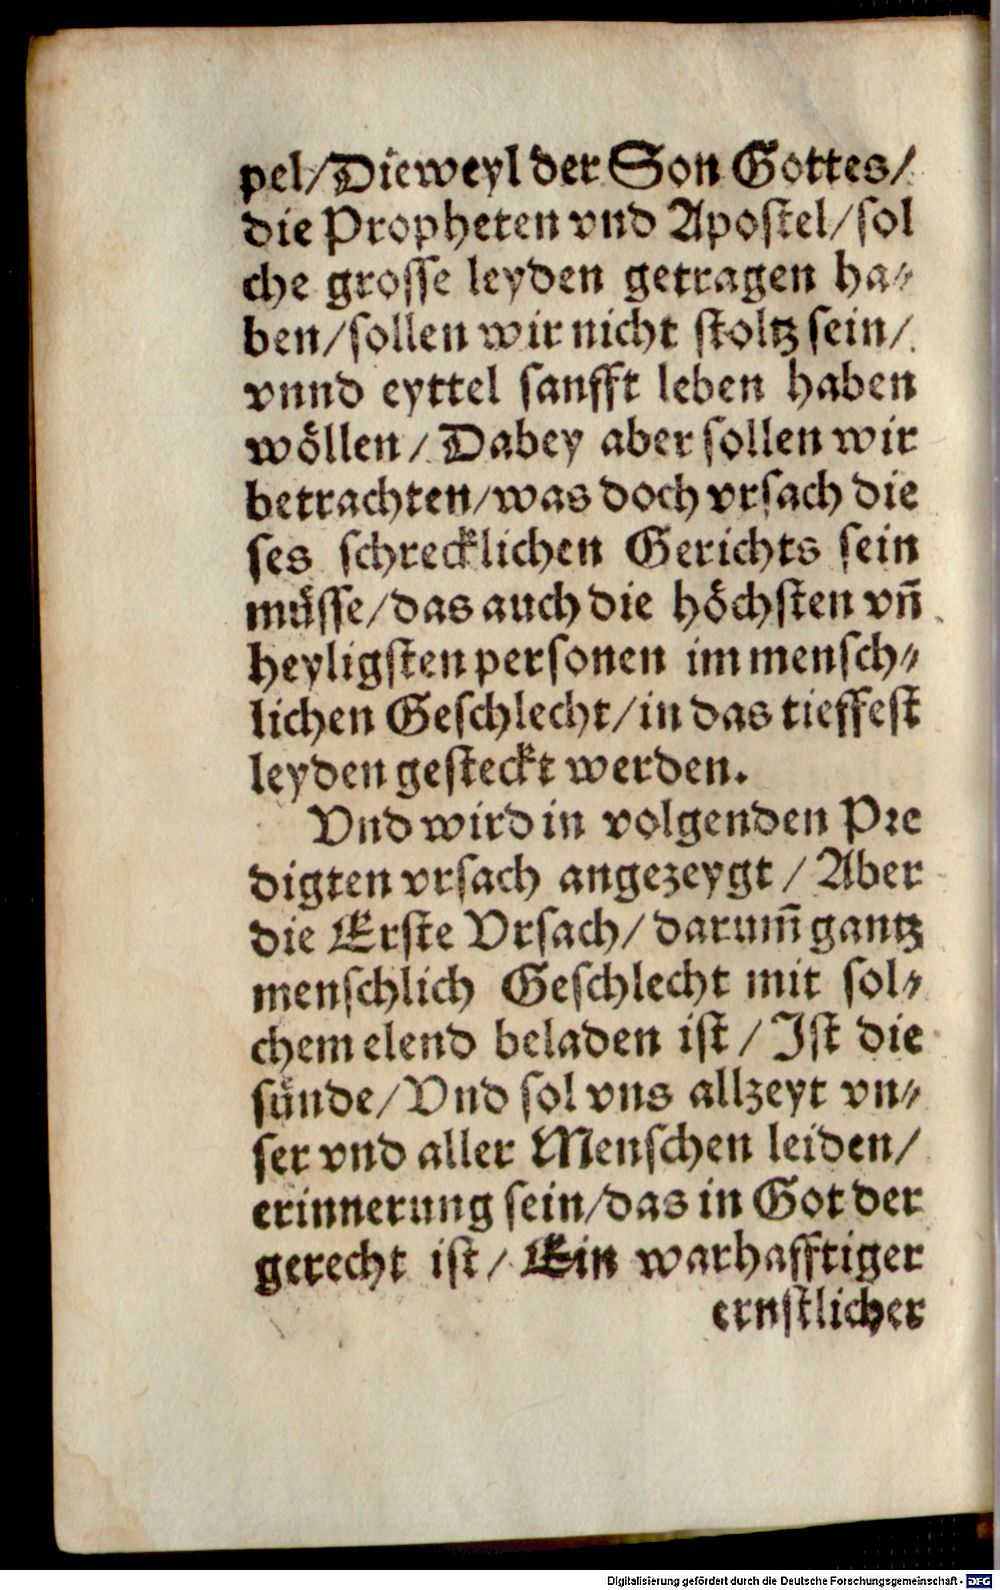 pel/Dieweyl der Son Gottes/
die Propheten vnd Apostel/sol
che grosse leyden getragen ha⸗
ben/sollen wir nicht stoltz sein/
vnnd eyttel sanfft leben haben
wöllen/Dabey aber sollen wir
betrachten/was doch vrsach die
ses schrecklichen Gerichts sein
müsse/das auch die höchsten vn̄
heyligsten personen im mensch⸗
lichen Geschlecht/in das tieffest
leyden gesteckt werden.
Vnd wird in volgenden Pre
digten vrsach angezeygt/Aber
die Erste Vrsach/darum̄ gantz
menschlich Geschlecht mit sol⸗
chem elend beladen ist/Ist die
sünde/Vnd sol vns allzeyt vn⸗
ser vnd aller Menschen leiden/
erinnerung sein/das in Got der
gerecht ist/Ein warhafftiger
ernstlicher
Digitalisierung gefördert durch die Deutsche Forschungsgemeinschaft - DFG